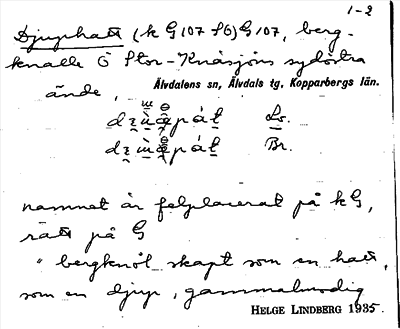 1-2
Djuphatt (k G 107 S6) G 107, berg-
knalle Ö Stor-Knåsjöns sydöstra
ände,
Älvdalens sn, Älvdals tg, Kopparbergs län.
Ls.
Br.
namnet är felplacerat på k G,
rätt på G
"bergknöl skapt som en hatt,
som en djup, gammalmodig
HELGE LINDBERG 1935.